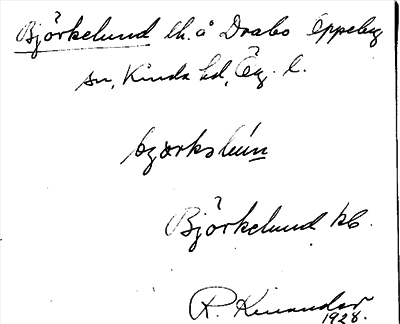 Björkelund lh. å Drabo Oppeby
sn, Kinda hd, Ög. l.
bjorkslun
Björkelund kb.
R. Kinander
1928.